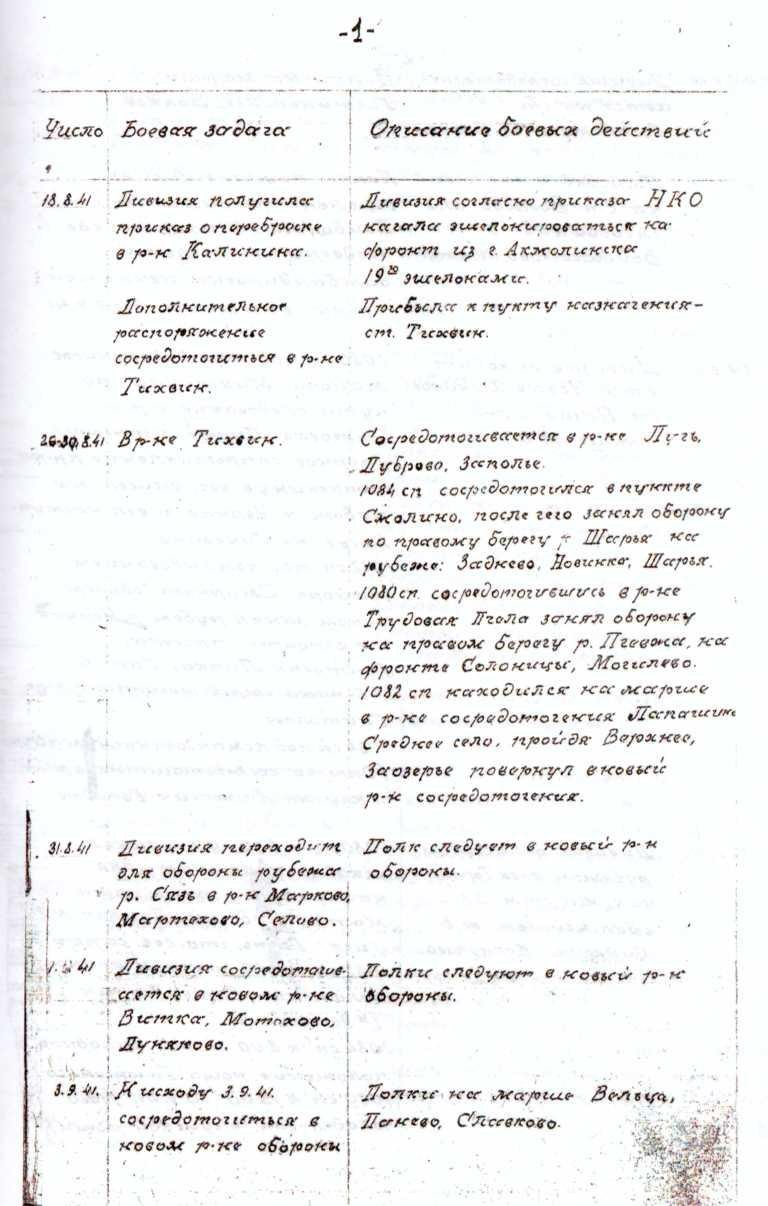 -1-
Число
Боевая задача
Описание боевых действий
18.8.41
Дивизия получила
приказ о переброске
в р-н Калинина.
Дополнительное
распоряжение
сосредоточиться в р-не
Тихвин.
Дивизия согласно приказа НКО
начала эшелонироваться на
фронт из г. Акмолинска
19 эшелонами.
Прибыла к пункту назначения-
ст. Тихвин.
26-30.8.41
В р-не Тихвин.
Сосредотачивается в р-не Лугь,
Дуброво, Заполье.
1084 сп сосредоточился в пункте
Смолино, после чего занял оборону
по правому берегу р Шарья на
рубеже: Заднево, Новинка, Шарья.
1080 сп. сосредоточившись в р-не
Трудовая Пчела занял оборону
на правом берегу р. Пчевжа, на
фронте Солоницы, Могилево.
1082 сп находился на марше
в р-не сосредоточения
Среднее село, пройдя Верхнее,
Заозерье повернул в новый
р-н сосредоточения.
31.8.41
Дивизия переходит
для обороны рубежа
р. Сязь в р-н Марково,
Мартехово, Селиво.
Полк следует в новый р-н
обороны.
41
Дивизия сосредоточив-
ается в новом р-не
Витка, Мотохово,
Дуняково.
Полки следуют в новый р-н
обороны.
3.9.41.
К исходу 3.9.41.
сосредоточиться в
новом р-не обороны
Полки на марше Вельца,
Панево, Славково.